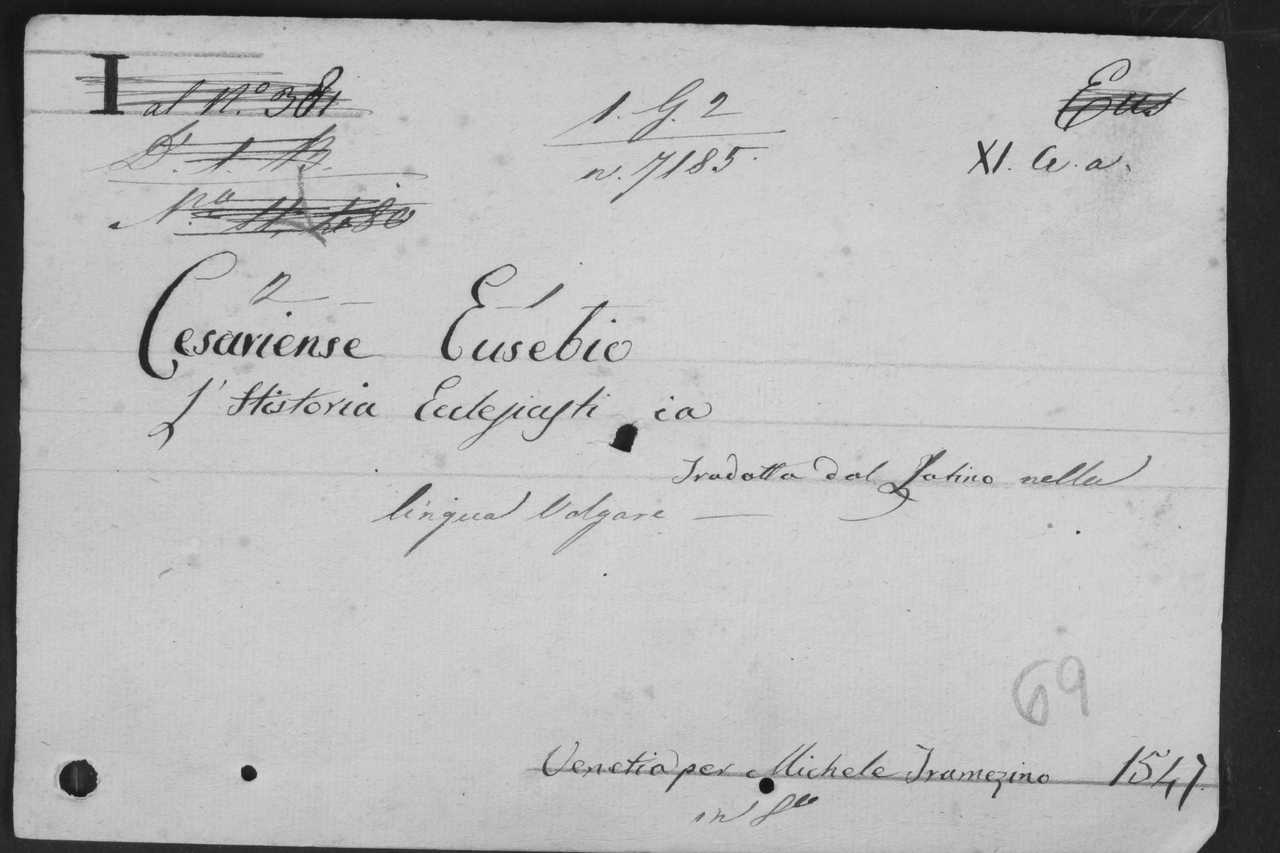 I
al N.º 381
1. G. 2
Eus
n. 7185.
XI. a.
2 1
Cesariense Eusebio
l'Historia Ecclesiasti ia
Tradotta dal Latino nella
lingua Volgare —
69
Venetia per Michele Tramezino 1547.
in 8vo